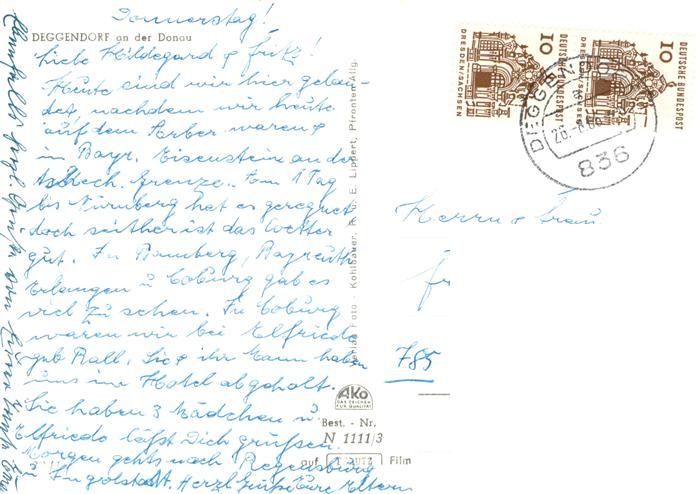 Donnerstag!
DEGGENDORF an der Donau
Liebe Hildegard & Fritz!
Heute sind wir hier gelan-
det nachdem wir heute
auf dem Arber waren &
in Bayr. Eisenstein an der
Tschech. Grenze. Am 1 Tag
bis Nürnberg hat es geregnet
doch seither ist das Wetter
gut. In Bamberg, Bayreuth
Erlangen u Coburg gab es
viel zu sehen. In Coburg
waren wir bei Elfriede
geb Rall, Sie & ihr Mann haben
uns im Hotel abgeholt.
Sie haben 3 Mädchen u
Elfriede läßt Dich grüßen.
Morgen gehts nach Regensburg
Ingolstadt. Herzl Grüße Eure Eltern
Verlag Foto-Kohlbauer, R. u. E. Lippert, Pfronten-Allg.
AKO
DAS ZEICHEN
FÜR QUALITÄT
Best. - Nr.
N 1111/3
auf PERUTZ Film
10
DEUTSCHE BUNDESPOST
DRESDEN/SACHSEN
10
DEUTSCHE BUNDESPOST
DRESDEN/SACHSEN
836
Herrn & Frau
785